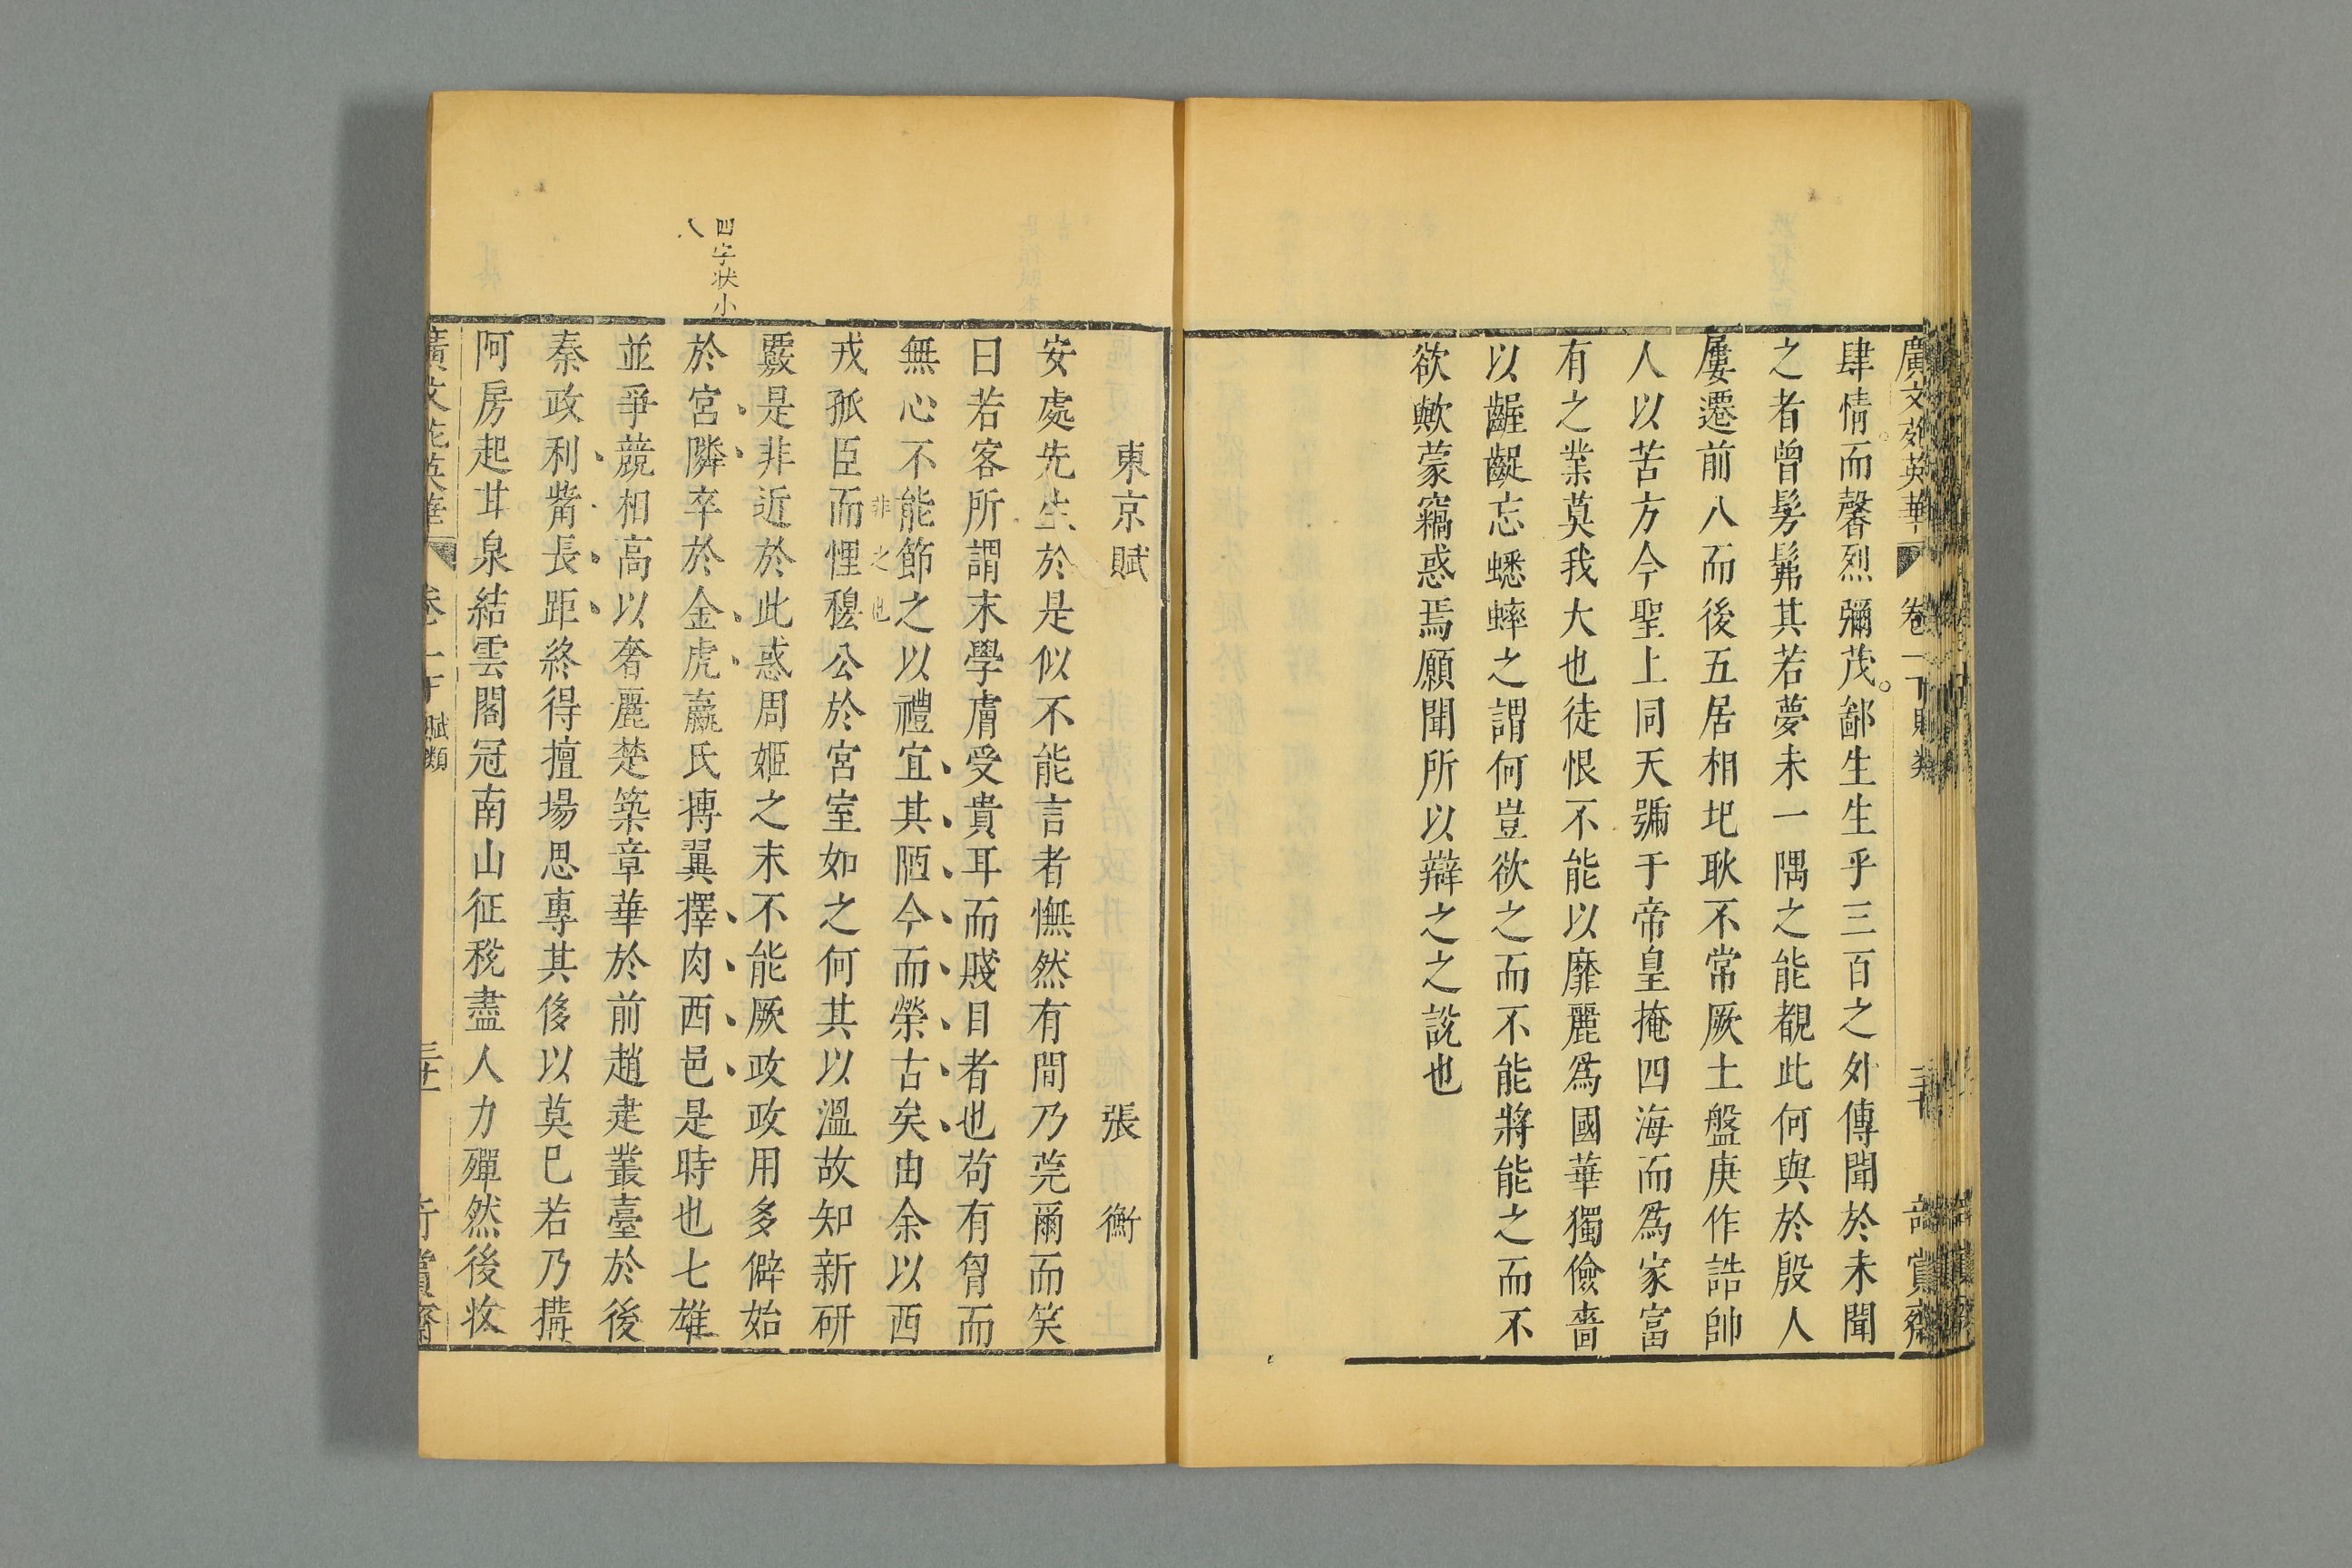 廣文苑英華 卷一下 賦類 三十 奇賞齋
肆情而馨烈彌茂鄙生生乎三百之外傳聞於未聞
之者曾髣髴其若夢未一隅之能覩此何與於殷人
屢遷前八而後五居相圯耿不常厥土盤庚作誥帥
人以苦方今聖上同天號于帝皇掩四海而爲家富
有之業莫我大也徒恨不能以靡麗爲國華獨儉嗇
以齷齪忘蟋蟀之謂何豈欲之而不能將能之而不
欲歟蒙竊惑焉願聞所以辯之之說也
東京賦 張衡
安處先生於是似不能言者憮然有間乃莞爾而笑
曰若客所謂末學膚受貴耳而賤目者也苟有胷而
無心不能節之以禮宜其陋今而榮古矣由余以西
非之也
戎孤臣而悝穆公於宮室如之何其以溫故知新研
覈是非近於此惑周姬之末不能厥政政用多僻始
四字狀小
人
於宮隣卒於金虎嬴氏搏翼擇肉西邑是時也七雄
並爭競相高以奢麗楚築章華於前趙建叢臺於後
秦政利觜長距終得擅場思專其侈以莫已若乃搆
阿房起甘泉結雲閣冠南山征稅盡人力殫然後收
廣文苑英華 卷一下 賦類 三十一 奇賞齋